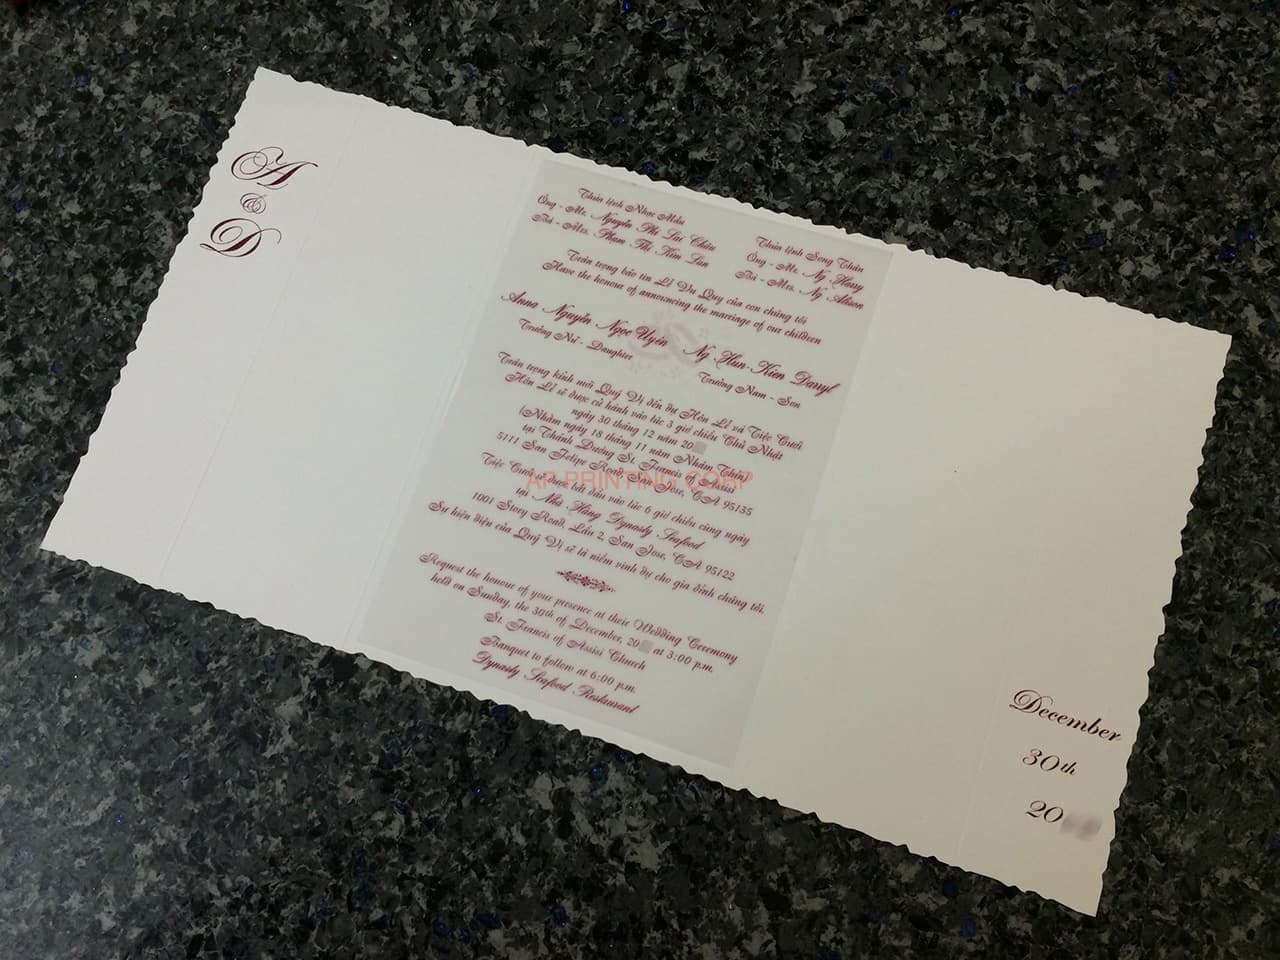 A
&
D
Thừa lệnh Nhạc Mẫu
Ông - Mr. Nguyễn Phi Lai Châu
Bà - Mrs. Phạm Thị Kim Lan
Thừa lệnh Song Thân
Ông - Mr. Ng Harry
Bà - Mrs. Ng Alison
Trân trọng báo tin Lễ Vu Quy của con chúng tôi
Have the honour of announcing the marriage of our children
Anna Nguyễn Ngọc Uyên
Trưởng Nữ - Daughter
Ng Hun-Kien Darryl
Trưởng Nam - Son
Trân trọng kính mời Quý Vị đến dự Hôn Lễ và Tiệc Cưới
Hôn Lễ sẽ được cử hành vào lúc 3 giờ chiều Chủ Nhật
ngày 30 tháng 12 năm 20
(Nhằm ngày 18 tháng 11 năm Nhâm Thìn)
tại Thánh Đường St. Francis of Assisi
5111 San Felipe Road, San Jose, CA 95135
AP PRINTING CORP
Tiệc Cưới sẽ được bắt đầu vào lúc 6 giờ chiều cùng ngày
tại Nhà Hàng Dynasty Seafood
1001 Story Road, Lầu 2, San Jose, CA 95122
Sự hiện diện của Quý Vị sẽ là niềm vinh dự cho gia đình chúng tôi.
Request the honour of your presence at their Wedding Ceremony
held on Sunday, the 30th of December, 20 at 3:00 p.m.
St. Francis of Assisi Church
Banquet to follow at 6:00 p.m.
Dynasty Seafood Restaurant
December
30th
20